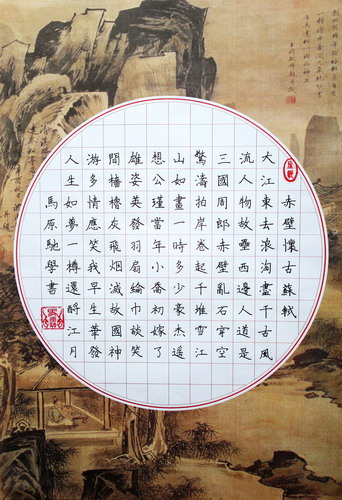 赤壁懷古 蘇軾
大江東去浪淘盡千古風
流人物故壘西邊人道是
三國周郎赤壁亂石穿空
驚濤拍岸卷起千堆雪江
山如畫一時多少豪杰遥
想公瑾當年小喬初嫁了
雄姿英發羽扇綸巾談笑
間檣櫓灰飛烟滅故國神
游多情應笑我早生華發
人生如夢一樽還酹江月
馬原馳學書